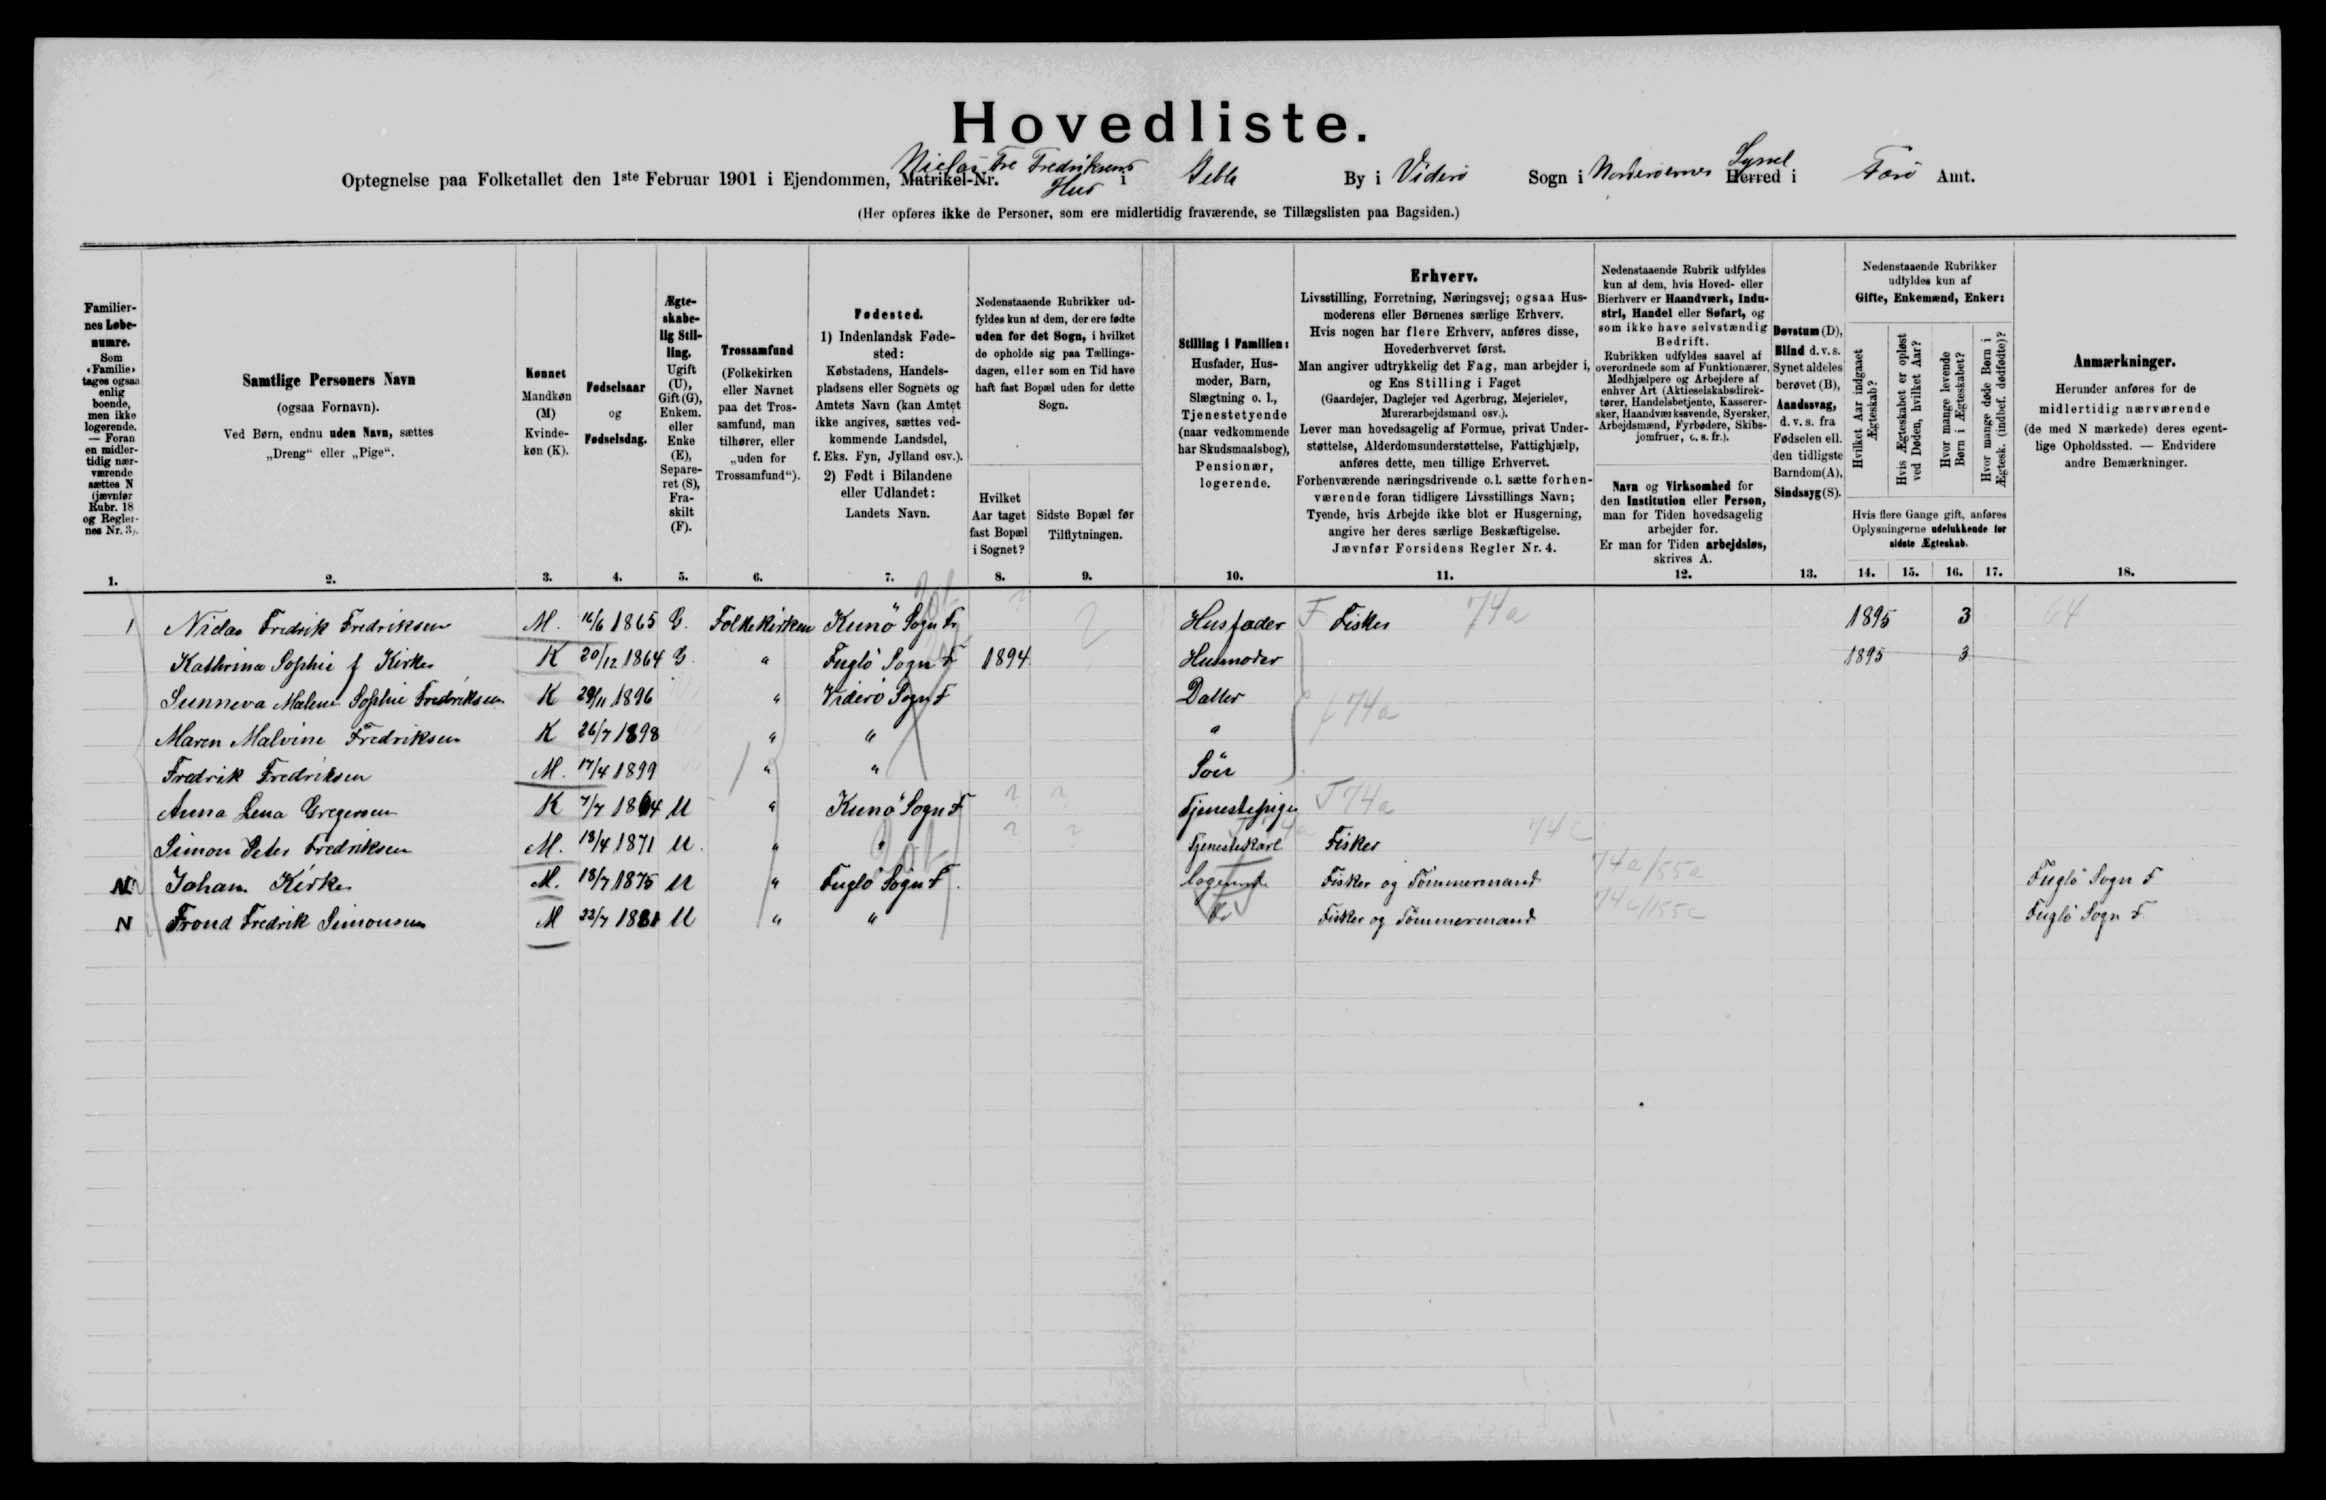 Hovedliste.
Optegnelse paa Folketallet den 1ste Februar 1901 i Ejendommen, Matrikel-Nr. Niclas Fre Fredriksens Hus i By i Viderø Sogn i Norderøernes Herred Syssel i Færø Amt.
(Her opføres ikke de Personer, som ere midlertidig fraværende, se Tillægslisten paa Bagsiden.)
Familier-
nes Løbe-
numre.
Som
«Familie»
tages ogsaa
enlig
boende,
men ikke
logerende.
— Foran
en midler-
tidig nær-
værende
sættes N
(jævnfør
Rubr. 18
og Regler-
nes Nr. 3).
1.
Samtlige Personers Navn
(ogsaa Fornavn).
Ved Børn, endnu uden Navn, sættes
„Dreng“ eller „Pige“.
2.
Kønnet
Mandkøn
(M)
Kvinde-
køn (K).
3.
Fødselsaar
og
Fødselsdag.
4.
Ægte-
skabe-
lig Stil-
ling.
Ugift
(U),
Gift (G),
Enkem.
eller
Enke
(E),
Separe-
ret (S),
Fra-
skilt
(F).
5.
Trossamfund
(Folkekirken
eller Navnet
paa det Tros-
samfund, man
tilhører, eller
„uden for
Trossamfund“).
6.
Fødested.
1) Indenlandsk Føde-
sted:
Købstadens, Handels-
pladsens eller Sognets og
Amtets Navn (kan Amtet
ikke angives, sættes ved-
kommende Landsdel,
f. Eks. Fyn, Jylland osv.).
2) Født i Bilandene
eller Udlandet:
Landets Navn.
7.
Nedenstaaende Rubrikker ud-
fyldes kun af dem, der ere fødte
uden for det Sogn, i hvilket
de opholde sig paa Tællings-
dagen, eller som en Tid have
haft fast Bopæl uden for dette
Sogn.
Hvilket
Aar taget
fast Bopæl
i Sognet?
8.
Sidste Bopæl før
Tilflytningen.
9.
Stilling i Familien:
Husfader, Hus-
moder, Barn,
Slægtning o. l.,
Tjenestetyende
(naar vedkommende
har Skudsmaalsbog),
Pensionær,
logerende.
10.
Erhverv.
Livsstilling, Forretning, Næringsvej; ogsaa Hus-
moderens eller Børnenes særlige Erhverv.
Hvis nogen har flere Erhverv, anføres disse,
Hovederhvervet først.
Man angiver udtrykkelig det Fag, man arbejder i,
og Ens Stilling i Faget
(Gaardejer, Daglejer ved Agerbrug, Mejerielev,
Murerarbejdsmand osv.).
Lever man hovedsagelig af Formue, privat Under-
støttelse, Alderdomsunderstøttelse, Fattighjælp,
anføres dette, men tillige Erhvervet.
Forhenværende næringsdrivende o.l. sætte forhen-
værende foran tidligere Livsstillings Navn;
Tyende, hvis Arbejde ikke blot er Husgerning,
angive her deres særlige Beskæftigelse.
Jævnfør Forsidens Regler Nr. 4.
11.
Nedenstaaende Rubrik udfyldes
kun af dem, hvis Hoved- eller
Bierhverv er Haandværk, Indu-
stri, Handel eller Søfart, og
som ikke have selvstændig
Bedrift.
Rubrikken udfyldes saavel af
overordnede som af Funktionærer,
Medhjælpere og Arbejdere af
enhver Art (Aktieselskabsdirek-
tører, Handelsbetjente, Kasserer-
sker, Haandværkssvende, Syersker,
Arbejdsmænd, Fyrbødere, Skibs-
jomfruer, o. s. fr.).
Navn og Virksomhed for
den Institution eller Person,
man for Tiden hovedsagelig
arbejder for.
Er man for Tiden arbejdsløs,
skrives A.
12.
Døvstum (D),
Blind d. v. s.
Synet aldeles
berøvet (B),
Aandssvag,
d. v. s. fra
Fødselen ell.
den tidligste
Barndom (A),
Sindssyg (S).
13.
Nedenstaaende Rubrikker
udfyldes kun af
Gifte, Enkemænd, Enker:
Hvilket Aar indgaaet
Ægteskab?
Hvis Ægteskabet er opløst
ved Døden, hvilket Aar?
Hvor mange levende
Børn i Ægteskabet?
Hvor mange døde Børn i
Ægtesk. (indbef. dødfødte)?
Hvis flere Gange gift, anføres
Oplysningerne udelukkende for
sidste Ægteskab.
14. 15. 16. 17.
Anmærkninger.
Herunder anføres for de
midlertidig nærværende
(de med N mærkede) deres egent-
lige Opholdssted. — Endvidere
andre Bemærkninger.
18.
1 Niclas Fredrik Fredriksen M. 16/6 1865 G. Folkekirken Kunø Sogn F. Husfader F Fisker 74a 1895 3 64
Kathrina Sophie f Kirke K 20/12 1864 G. " Fuglø Sogn F 1894 Husmoder 1895 3
Sunneva Malene Sophie Fredriksen K 29/11 1896 " Viderø Sogn F Datter f 74a
Maren Malvine Fredriksen K 26/7 1898 " " "
Fredrik Fredriksen M. 17/4 1899 " " Søn
Anna Lena Gregersen K 7/7 1864 U " Kunø Sogn F ? ? Tjenestepige T 74a
Simon Peter Fredriksen M. 18/4 1871 U. " " ? ? Tjenestekarl Fisker 74c
N Johan Kirke M. 18/7 1875 U " Fuglø Sogn F. logerende Fisker og Tømmermand 74a/55a Fuglø Sogn F
N Trond Fredrik Simonsen M 22/7 1881 U " " Fisker og Tømmermand 74c/155c Fuglø Sogn F.